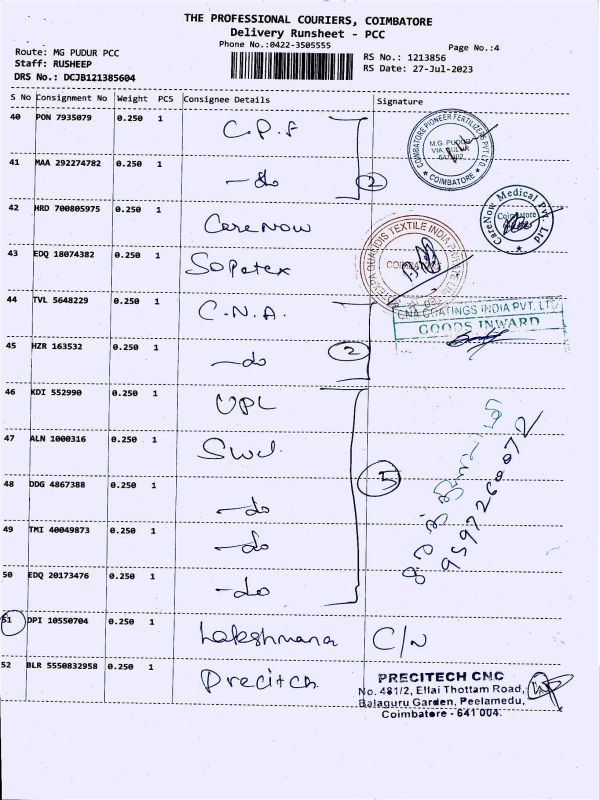 THE PROFESSIONAL COURIERS, COIMBATORE
Delivery Runsheet - PCC
Phone No.:0422-3505555
Page No.:4
Route: MG PUDUR PCC
Staff: RUSHEEP
DRS No.: DCJB121385604
RS No.: 1213856
RS Date: 27-Jul-2023
S No Consignment No Weight PCS Consignee Details Signature
40 PON 7935079 0.250 1 C.P.F
41 MAA 292274782 0.250 1 -do
2
COIMBATORE PIONEER FERTILIZERS PVT LTD
M.G. PUDUR
VIA. SULUR
COIMBATORE
42 HRD 700805975 0.250 1 CareNow
CareNow Medical Pvt Ltd
Coimbatore
43 EDQ 18074382 0.250 1 Sopetex
TEXTILE INDIA
44 TVL 5648229 0.250 1 C.N.A.
CNA COATINGS INDIA PVT. LTD
GOODS INWARD
45 HZR 163532 0.250 1 -do
2
46 KDI 552990 0.250 1 UPL
47 ALN 1000316 0.250 1 Swl
48 DDG 4867388 0.250 1 -do
49 TMI 40049873 0.250 1 -do
50 EDQ 20173476 0.250 1 -do
5
9597260072
51 DPI 10550704 0.250 1 Lakshmana C/N
52 BLR 5550832958 0.250 1 Precitch
PRECITECH CNC
No. 481/2, Ellai Thottam Road,
Balaguru Garden, Peelamedu,
Coimbatore - 641 004.